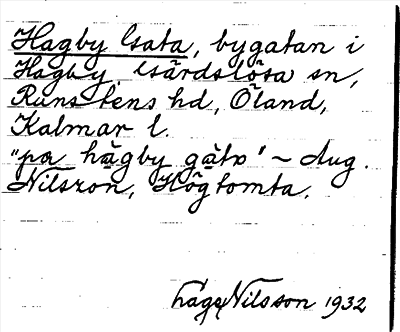 Hagby Gata, bygatan i
Hagby, Gärdslösa sn,
Runstens hd, Öland,
Kalmar l.
"pa hàgby gàtɒ" ~ Aug.
Nilsson, Högtomta.
Nilsson 1932